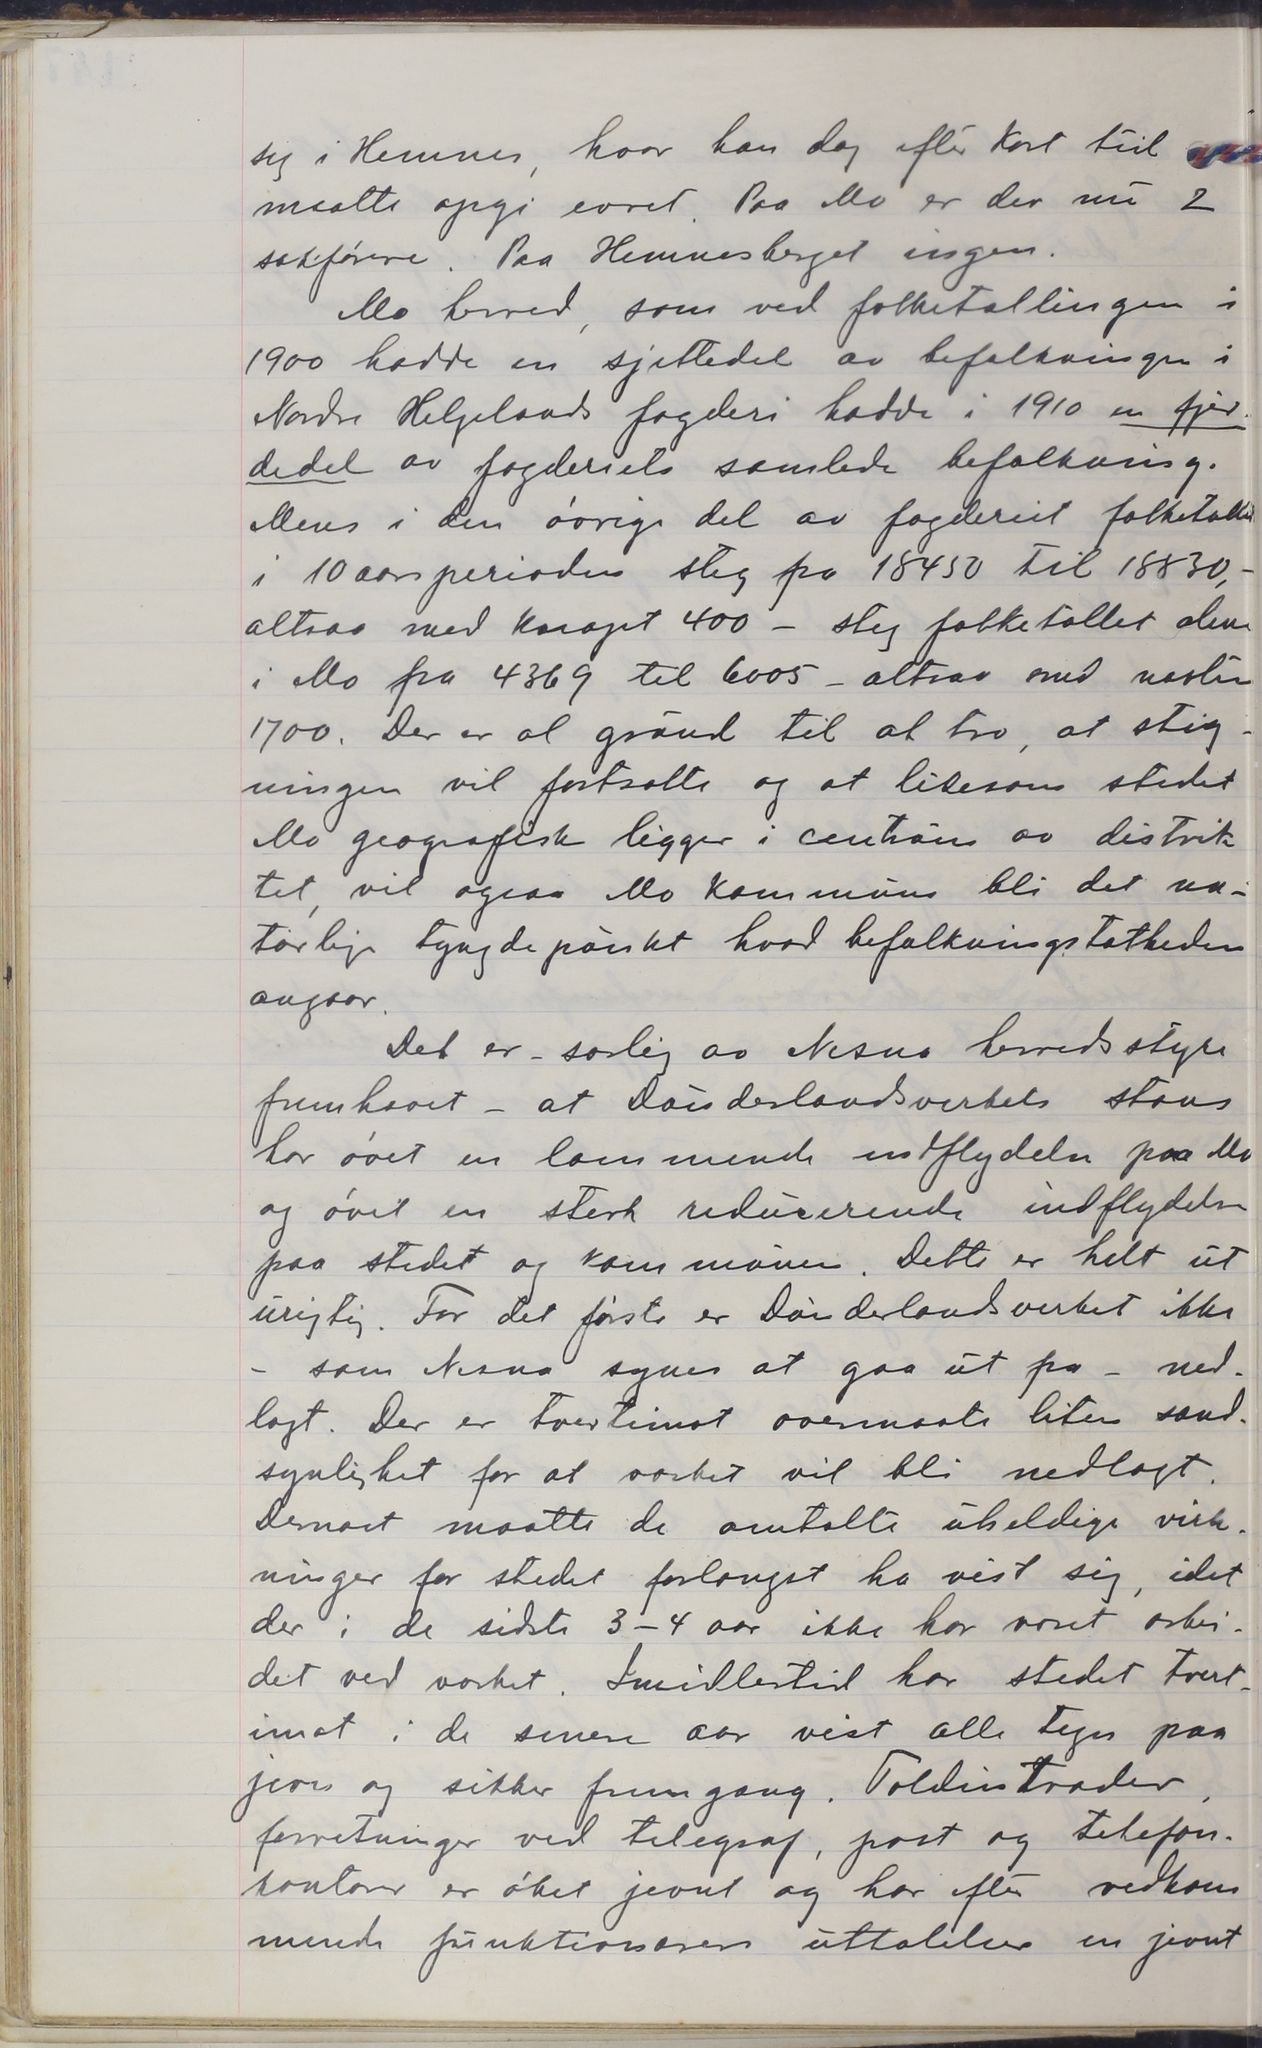 sig i Hemnes, hvor han dog efter kort tid
maatte opgi evret. Paa Mo er der nu 2
sakførere. Paa Hemnesberget ingen.
Mo herred, som ved folketællingen i
1900 hadde en sjettedel av befolkningen i
Nordre Helgelands fogderi hadde i 1910 en fjer-
dedel av fogderiets samlede befolkning.
Mens i den øvrige del av fogderiet folketallet
i 10 aarsperioden steg fra 18430 til 18830,-
altsaa med knapt 400 - steg folketallet alene
i Mo fra 4369 til 6005 - altsaa med næsten
1700. Der er al grund til at tro, at stig-
ningen vil fortsætte og at likesom stedet
Mo geografisk ligger i centrum av distrik
tet, vil ogsaa Mo kommune bli det na-
turlige tyngdepunkt hvad befolkningstætheden
angaar.
Det er - særlig av Nesna herredsstyre
fremhævet - at Dunderlandsverkets stans
har øvet en lammende indflydelse paa Mo
og øvet en sterk reducerende indflydelse
paa stedet og kommunen. Dette er helt ut
urigtig. For det første er Dunderlandsverket ikke
- som Nesna synes at gaa ut fra - ned-
lagt. Der er tvertimot overmaate liten sand-
synlighet for at verket vil bli nedlagt.
Dernæst maatte de omtalte uheldige virk-
ninger for stedet forlængst ha vist sig, idet
der i de sidste 3-4 aar ikke har været arbei-
det ved verket. Imidlertid har stedet tvert-
imot i de senere aar vist alle tegn paa
jevn og sikker fremgang. Toldintrader,
forretninger ved telegraf, post og telefon-
kontorer er øket jevnt og har efter vedkom
mende funktionærers uttalelser en jevnt